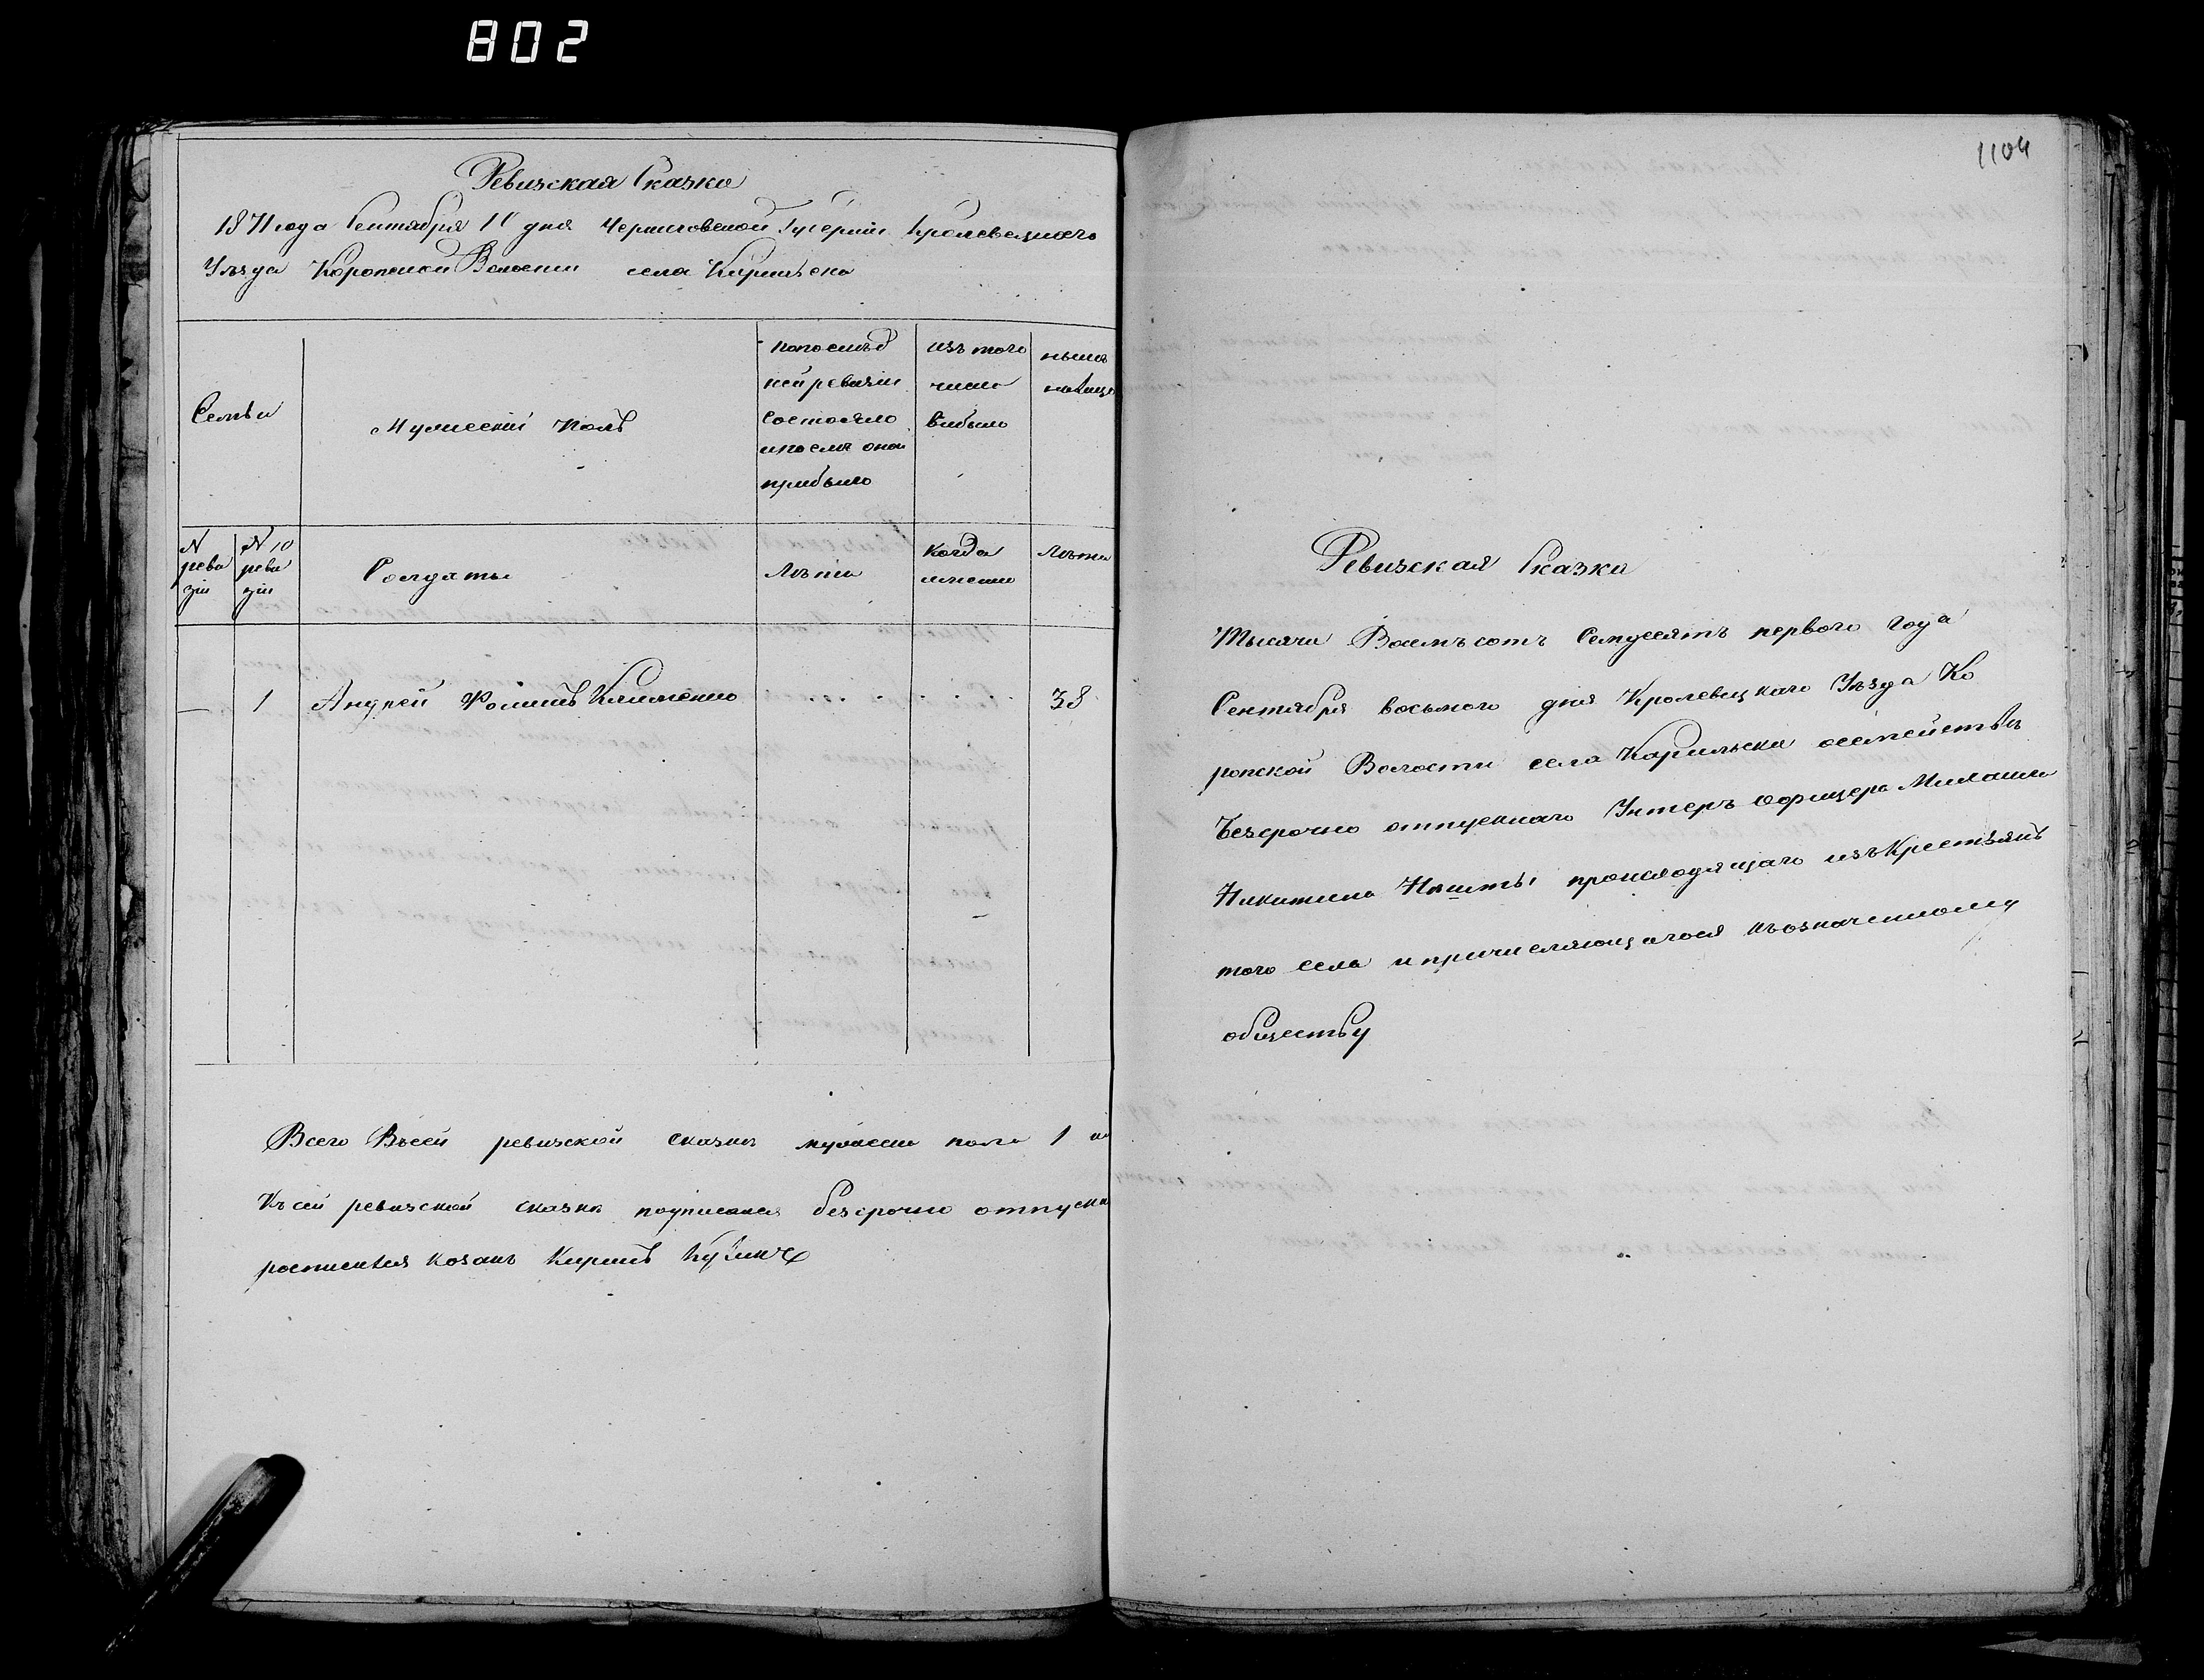 802
Ревизская Сказка
1871 года Сентября 10 дня Черниговской Губернии Кролевецкаго
Уѣзда Коропской Волости села Карильска
Семьи
Мужеский Полъ
по послѣд
ней ревизіи
состояло
и послѣ оной
прибыло
изъ того
числа
выбыло
нынѣ
налицо
N
реви
зіи
N 10
реви
зіи
Солдаты
Лѣта
Когда
именно
Лѣта
1 Андрей Фоминъ Клименко 38
Всего Въсей ревизской сказкѣ мужеска пола 1
Къ сей ревизской сказкѣ подписался безсрочно отпускн
росписался козакъ Кирилъ
1104
Ревизская Сказка
Тысяча Восемьсотъ Семдесятъ первого года
Сентября восьмого дня Кролевецкаго Уѣзда Ко
ропской Волости села Карильска осемействѣ
Безсрочно отпускнаго Унтеръ Офицера
Никитина происходящаго изъ Крестьянъ
того села и причисляющагося къ означенному
обществу